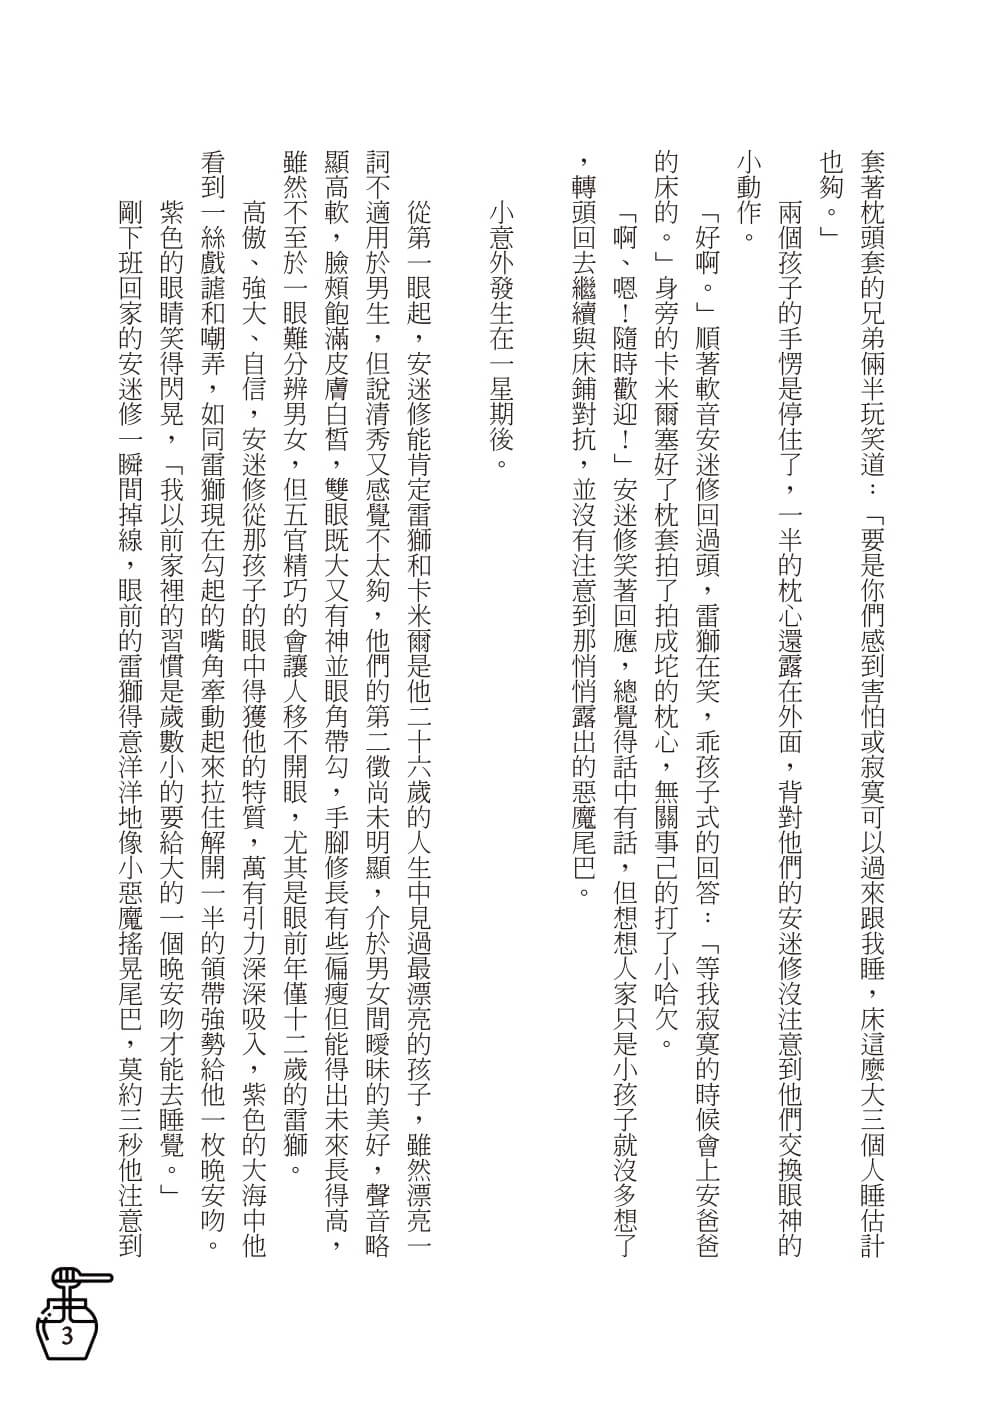 套著枕頭套的兄弟倆半玩笑道：「要是你們感到害怕或寂寞可以過來跟我睡，床這麼大三個人睡估計
也夠。」
兩個孩子的手愣是停住了，一半的枕心還露在外面，背對他們的安迷修沒注意到他們交換眼神的
小動作。
「好啊。」順著軟音安迷修回過頭，雷獅在笑，乖孩子式的回答：「等我寂寞的時候會上安爸爸
的床的。」身旁的卡米爾塞好了枕套拍了拍成坨的枕心，無關事己的打了小哈欠。
「啊、嗯！隨時歡迎！」安迷修笑著回應，總覺得話中有話，但想想人家只是小孩子就沒多想了
，轉頭回去繼續與床鋪對抗，並沒有注意到那悄悄露出的惡魔尾巴。
小意外發生在一星期後。
從第一眼起，安迷修能肯定雷獅和卡米爾是他二十六歲的人生中見過最漂亮的孩子，雖然漂亮一
詞不適用於男生，但說清秀又感覺不太夠，他們的第二徵尚未明顯，介於男女間曖昧的美好，聲音略
顯高軟，臉頰飽滿皮膚白皙，雙眼既大又有神並眼角帶勾，手腳修長有些偏瘦但能得出未來長得高，
雖然不至於一眼難分辨男女，但五官精巧的會讓人移不開眼，尤其是眼前年僅十二歲的雷獅。
高傲、強大、自信，安迷修從那孩子的眼中得獲他的特質，萬有引力深深吸入，紫色的大海中他
看到一絲戲謔和嘲弄，如同雷獅現在勾起的嘴角牽動起來拉住解開一半的領帶強勢給他一枚晚安吻。
紫色的眼睛笑得閃晃，「我以前家裡的習慣是歲數小的要給大的一個晚安吻才能去睡覺。」
剛下班回家的安迷修一瞬間掉線，眼前的雷獅得意洋洋地像小惡魔搖晃尾巴，莫約三秒他注意到
3